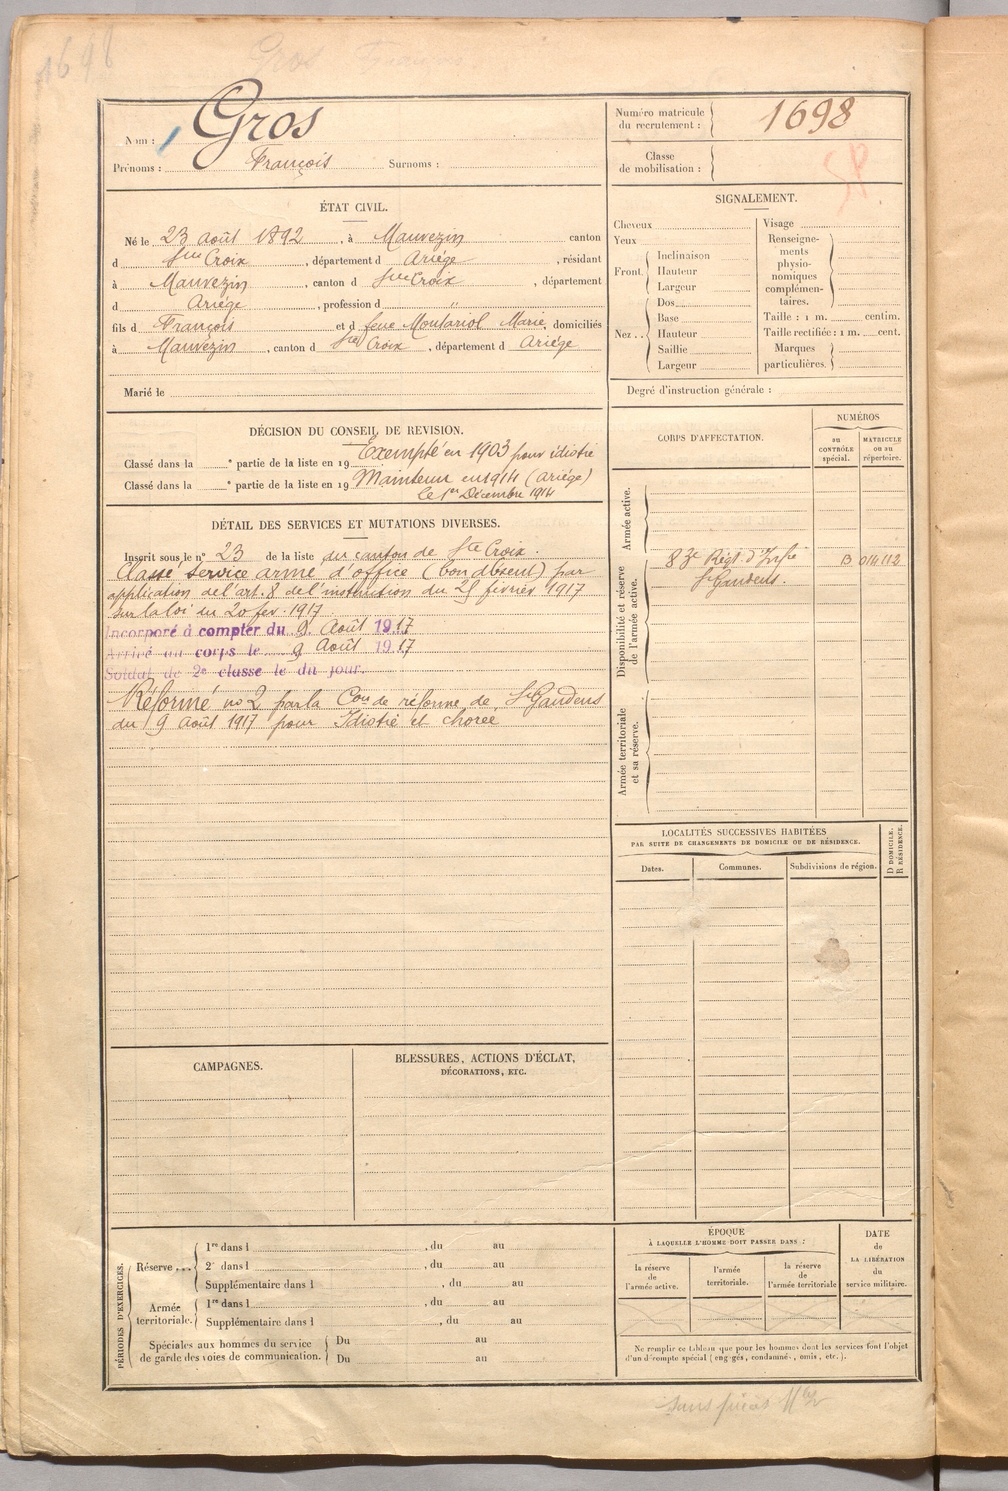 1698
Gros François
Nom : Gros
Prénoms : François Surnoms :
Numéro matricule
du recrutement : 1698
Classe
de mobilisation :
SP
ÉTAT CIVIL.
Né le 23 août 1892, à Mauvezin canton
d Ste Croix, département d Ariège, résidant
à Mauvezin, canton d Ste Croix, département
d Ariège, profession d "
fils d François et d feue Montariol Marie, domiciliés
à Mauvezin, canton d Ste Croix, département d Ariège
Marié le
SIGNALEMENT.
Cheveux
Yeux
Front. Inclinaison
Hauteur
Largeur
Nez.. Dos
Base
Hauteur
Saillie
Largeur
Visage
Renseigne-
ments
physio-
nomiques
complémen-
taires.
Taille : 1 m. centim.
Taille rectifiée : 1 m. cent.
Marques
particulières.
Degré d'instruction générale :
DÉCISION DU CONSEIL DE REVISION.
Classé dans la e partie de la liste en 19 Exempté en 1903 pour idiotie
Classé dans la e partie de la liste en 19 Maintenu en 1914 (Ariège)
le 1er Décembre 1914
DÉTAIL DES SERVICES ET MUTATIONS DIVERSES.
Inscrit sous le n° 23 de la liste du canton de Ste Croix.
Classé service armé d'office (bon absent) par
application de l'art. 8 de l'instruction du 25 février 1917
sur la loi du 20 fev. 1917
Incorporé à compter du 9 Août 1917
Arrivé au corps le 9 Août 1917
Soldat de 2e classe le dit jour.
Réformé no 2 par la Con de réforme de St Gaudens
du 9 août 1917 pour Idiotie et chorée
CORPS D'AFFECTATION.
NUMÉROS
au
CONTRÔLE
spécial.
MATRICULE
ou au
répertoire.
Armée active.
Disponibilité et réserve
de l'armée active.
83e Régt. d'Infie B 014112
St Gaudens.
Armée territoriale
et sa réserve.
LOCALITÉS SUCCESSIVES HABITÉES
PAR SUITE DE CHANGEMENTS DE DOMICILE OU DE RÉSIDENCE.
Dates.
Communes.
Subdivisions de région.
D DOMICILE.
R RÉSIDENCE.
CAMPAGNES.
BLESSURES, ACTIONS D'ÉCLAT,
DÉCORATIONS, ETC.
PÉRIODES D'EXERCICES.
Réserve... 1re dans l , du au
2e dans l , du au
Supplémentaire dans l , du au
Armée
territoriale. 1re dans l , du au
Supplémentaire dans l , du au
Spéciales aux hommes du service
de garde des voies de communication. Du au
Du au
ÉPOQUE
À LAQUELLE L'HOMME DOIT PASSER DANS :
la réserve
de
l'armée active.
l'armée
territoriale.
la réserve
de
l'armée territoriale
DATE
de
LA LIBÉRATION
du
service militaire.
Ne remplir ce tableau que pour les hommes dont les services font l'objet
d'un décompte spécial (engagés, condamnés, omis, etc.).
sans pièces